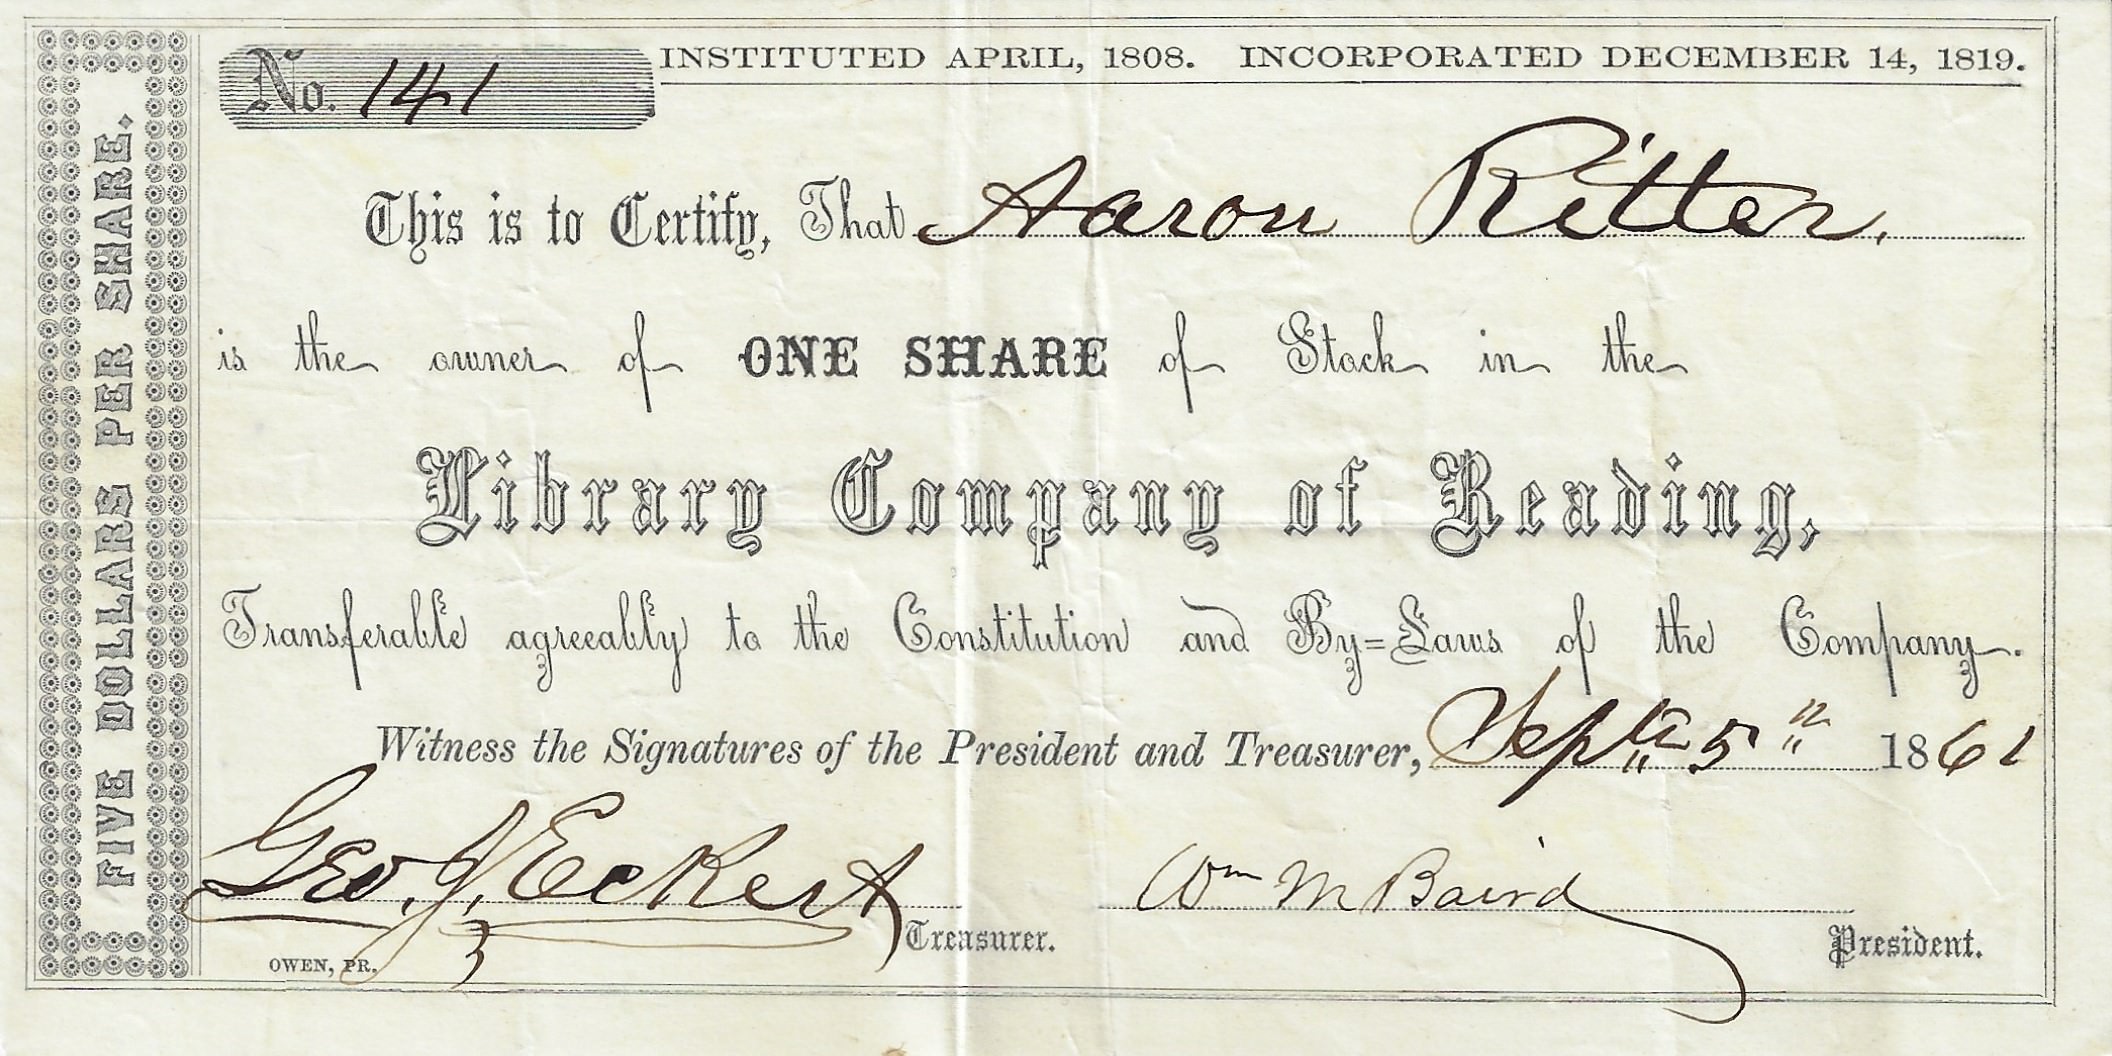 FIVE DOLLARS PER SHARE.
No. 141
INSTITUTED APRIL, 1808. INCORPORATED DECEMBER 14, 1819.
This is to Certify, That Aaron Ritter.
is the owner of ONE SHARE of Stock in the
Library Company of Reading,
Transferable agreeably to the Constitution and By=Laws of the Company.
Witness the Signatures of the President and Treasurer, Septr 5th 1861
Geo. J. Eckert Treasurer.
Wm M Baird President.
OWEN, PR.